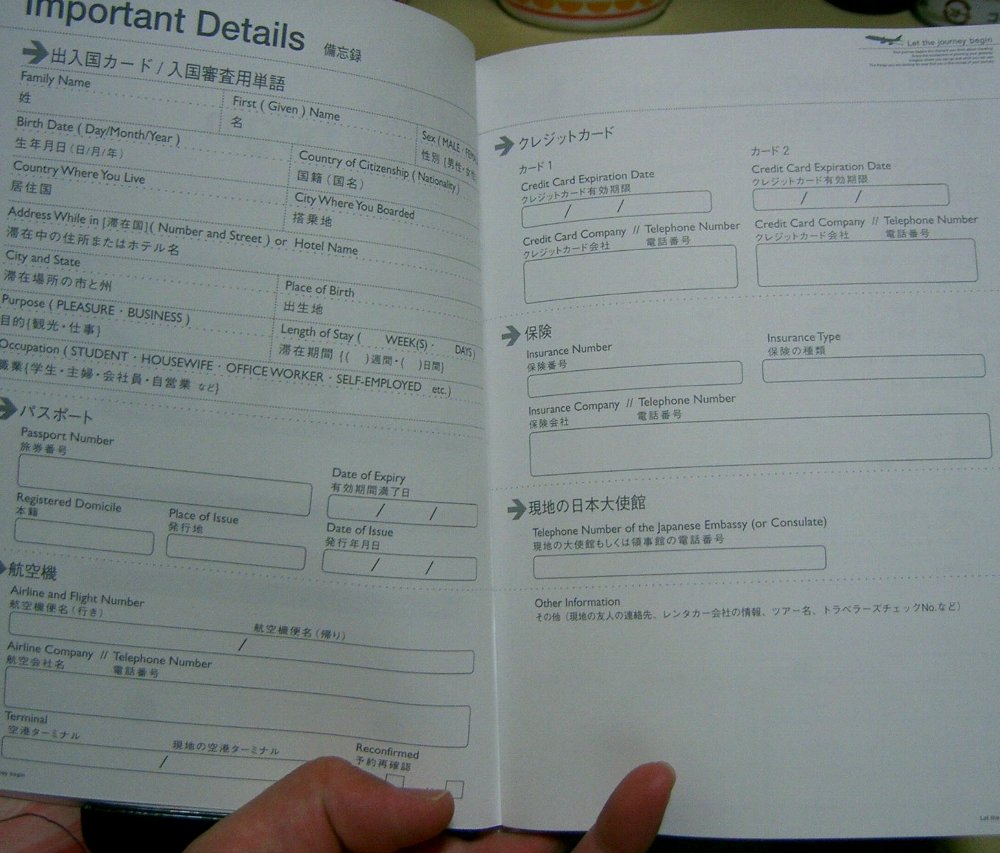 Important Details 備忘録
出入国カード / 入国審査用単語
Family Name
姓
First ( Given ) Name
名
Sex ( MALE ·
性別 {男性・
Birth Date ( Day/Month/Year )
生年月日 (日/月/年)
Country of Citizenship ( Nationality )
国籍 (国名)
Country Where You Live
居住国
City Where You Boarded
搭乗地
Address While in [滞在国]( Number and Street ) or Hotel Name
滞在中の住所またはホテル名
City and State
滞在場所の市と州
Place of Birth
出生地
Purpose ( PLEASURE · BUSINESS )
目的{観光・仕事}
Length of Stay ( WEEK(S) · DAYS )
滞在期間 {( )週間・( )日間}
Occupation ( STUDENT · HOUSEWIFE · OFFICE WORKER · SELF-EMPLOYED etc.)
職業{学生・主婦・会社員・自営業 など}
パスポート
Passport Number
旅券番号
Date of Expiry
有効期間満了日
/ /
Registered Domicile
本籍
Place of Issue
発行地
Date of Issue
発行年月日
/ /
航空機
Airline and Flight Number
航空機便名 (行き) 航空機便名 (帰り)
/
Airline Company // Telephone Number
航空会社名 電話番号
Terminal
空港ターミナル 現地の空港ターミナル
/
Reconfirmed
予約再確認
Let the journey begin
クレジットカード
カード 1
Credit Card Expiration Date
クレジットカード有効期限
/ /
Credit Card Company // Telephone Number
クレジットカード会社 電話番号
カード 2
Credit Card Expiration Date
クレジットカード有効期限
/ /
Credit Card Company // Telephone Number
クレジットカード会社 電話番号
保険
Insurance Number
保険番号
Insurance Type
保険の種類
Insurance Company // Telephone Number
保険会社 電話番号
現地の日本大使館
Telephone Number of the Japanese Embassy (or Consulate)
現地の大使館もしくは領事館の電話番号
Other Information
その他 (現地の友人の連絡先、レンタカー会社の情報、ツアー名、トラベラーズチェックNo.など)
Let the